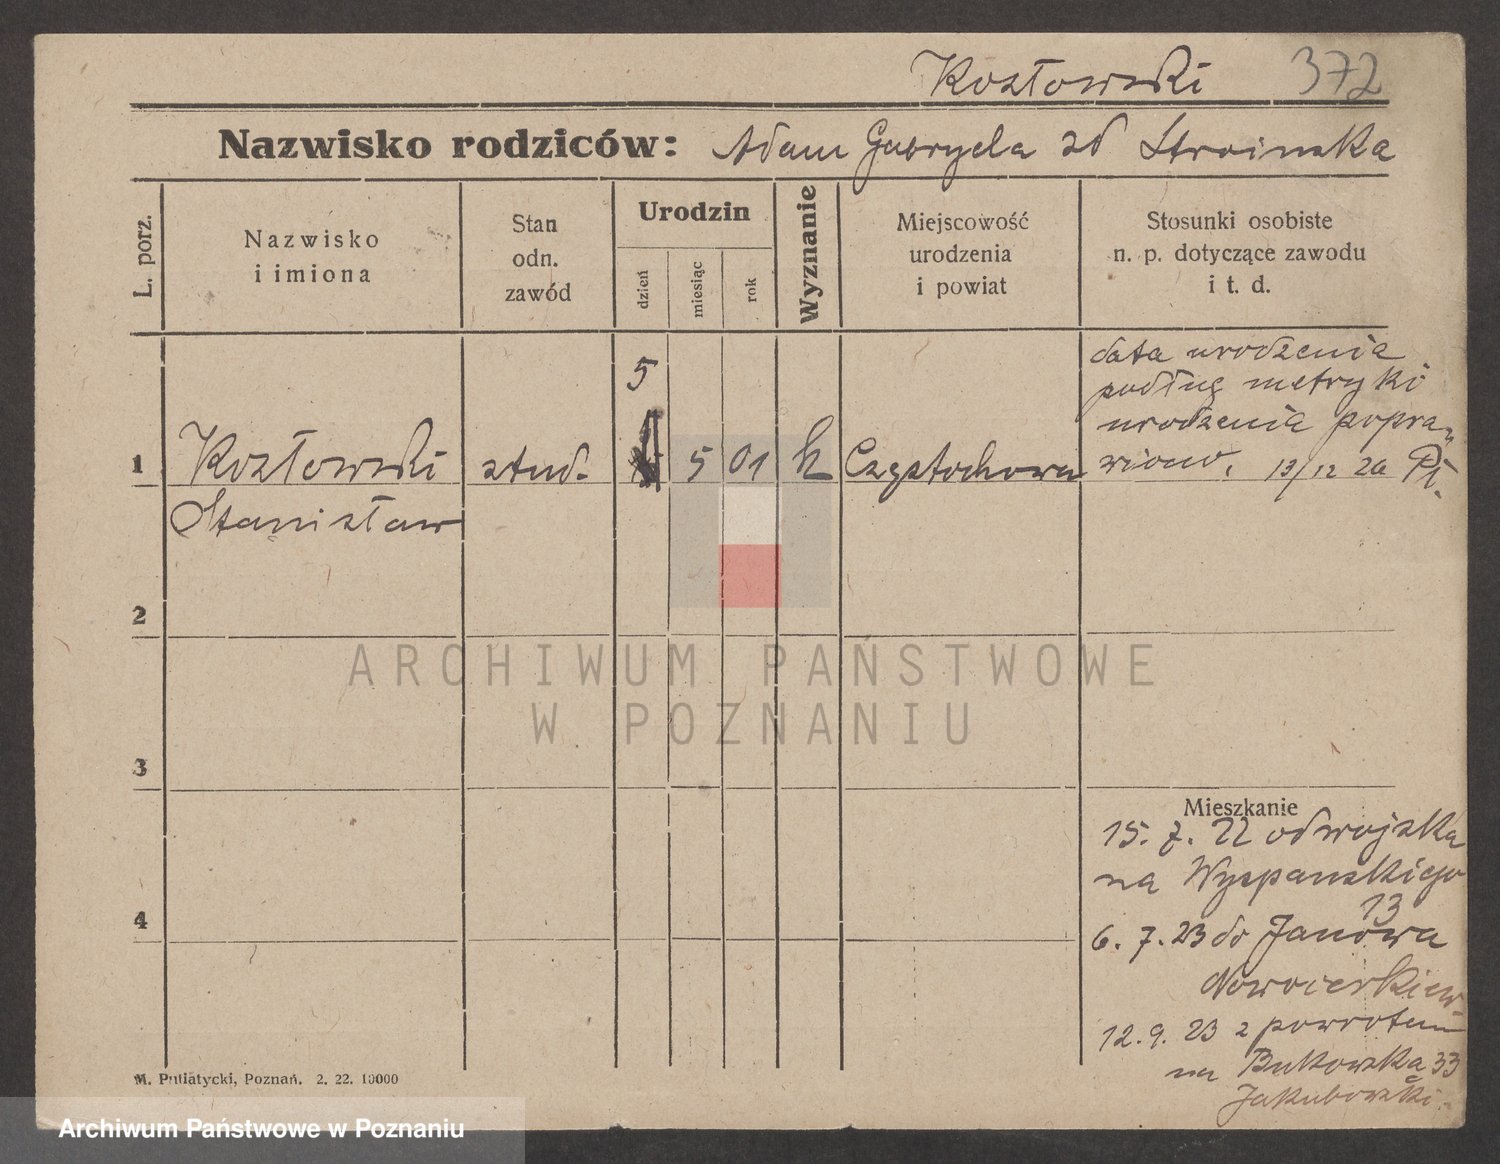 Kozłowski 372
Nazwisko rodziców: Adam Gabryela zd Stroinska
L. porz.
Nazwisko
i imiona
Stan
odn.
zawód
Urodzin
dzień
miesiąc
rok
Wyznanie
Miejscowość
urodzenia
i powiat
Stosunki osobiste
n. p. dotyczące zawodu
i t. d.
data urodzenia
5
podług metryki
urodzenia popra-
1 Kozłowski stud. 5 01 k Częstochowa wiono. 13/12 26
Stanisław
2
ARCHIWUM PAŃSTWOWE
W POZNANIU
3
Mieszkanie
15. 7. 22 od wojska
na Wyspanskiego
13
4
6. 7. 23 do Janowa
12. 9. 23 z powrotem
na Bukowską 33
Jakubowski.
M. Putiatycki, Poznań. 2. 22. 10000
Archiwum Państwowe w Poznaniu